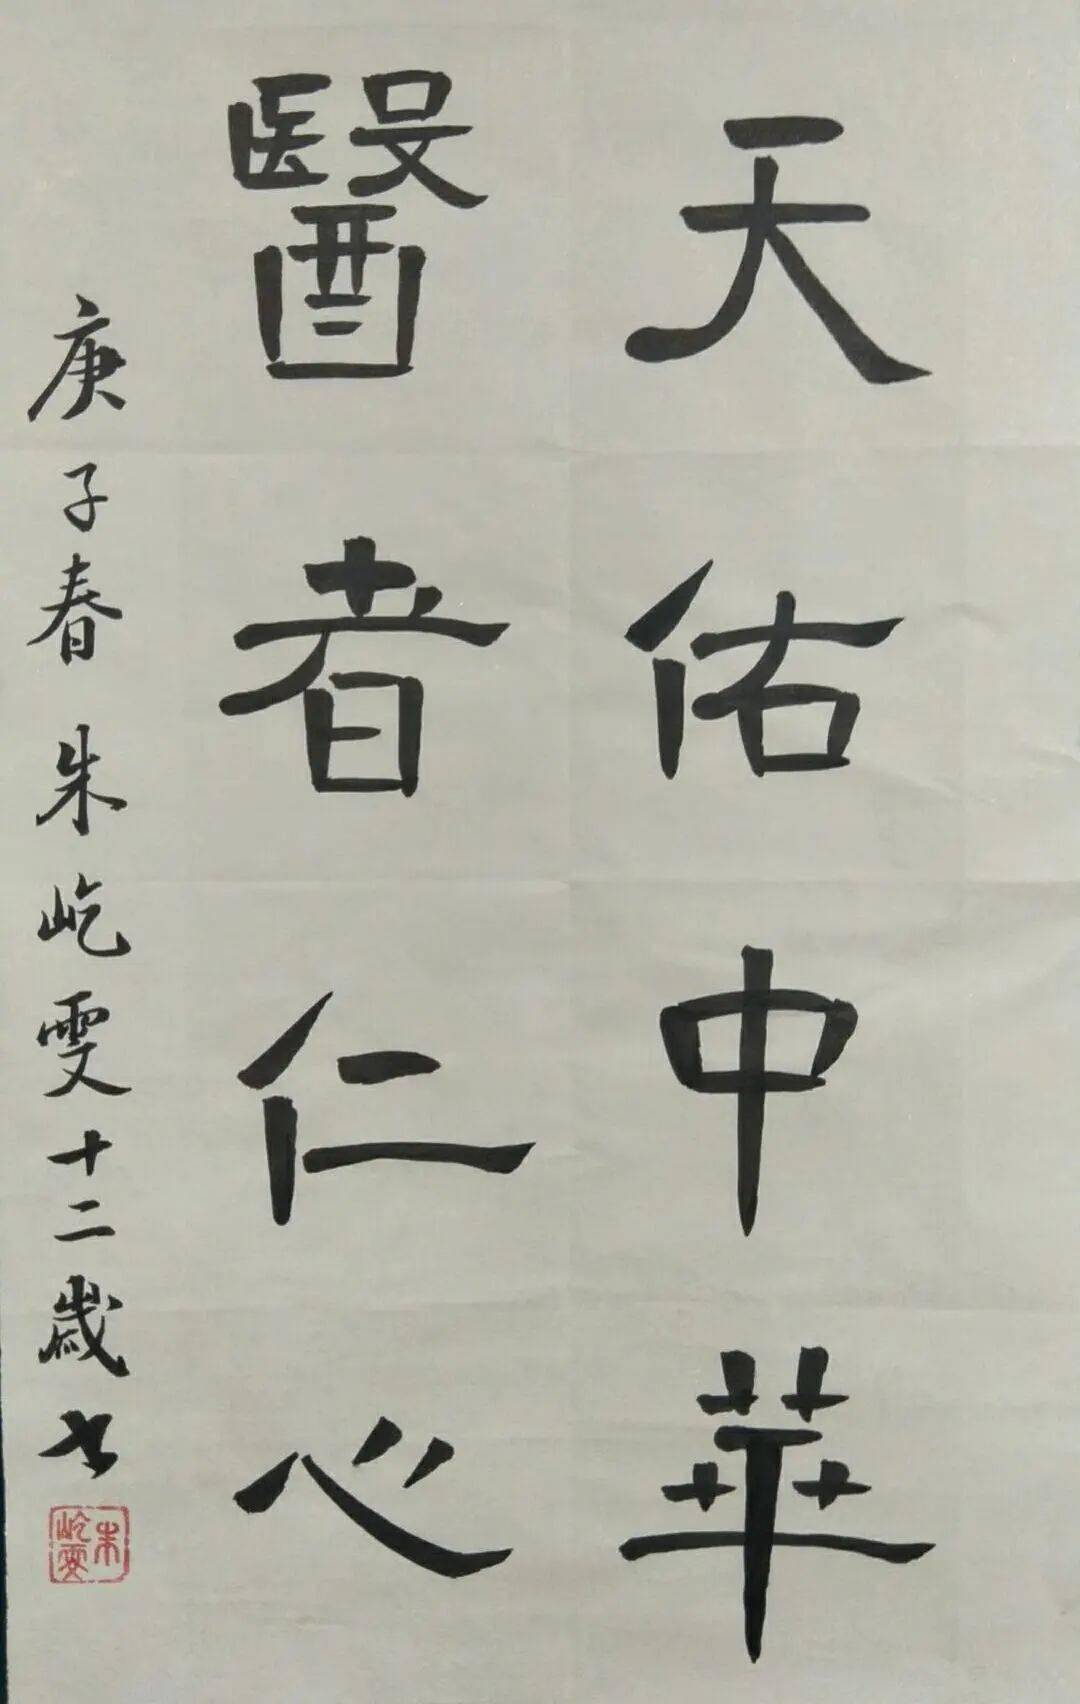 天佑中華
醫者仁心
庚子春朱屹雯十二歲书
朱屹雯